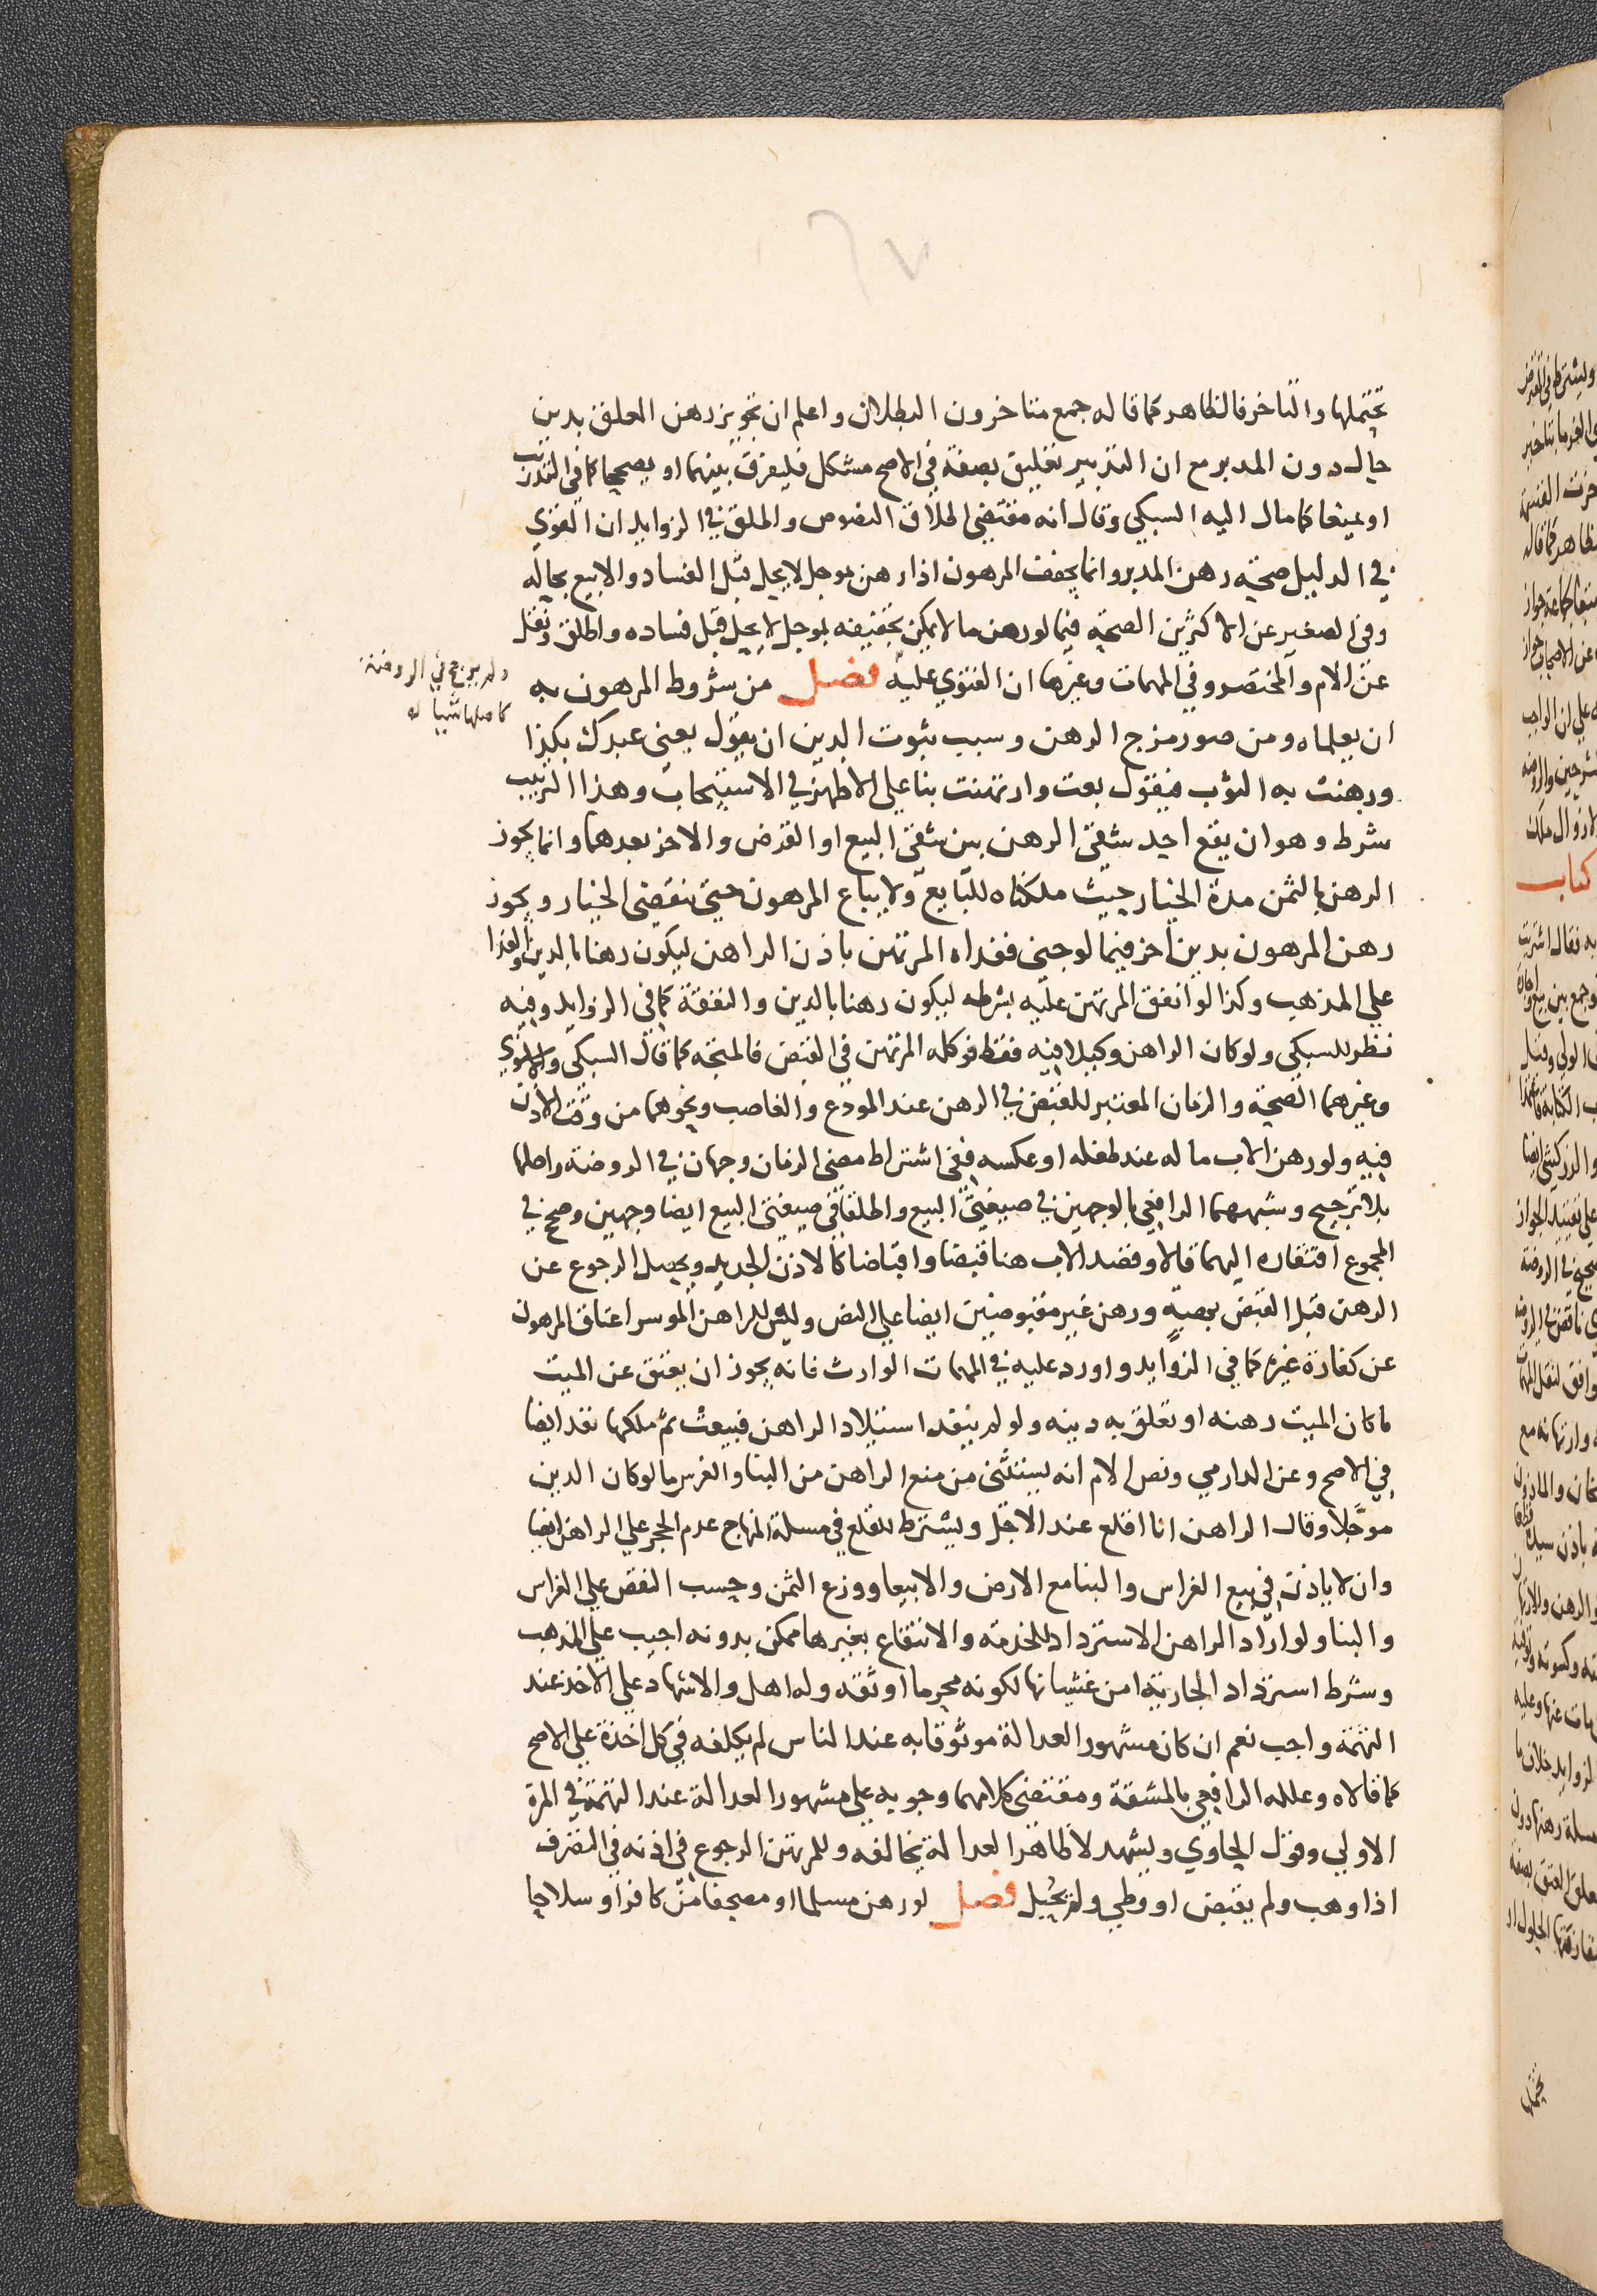 يحتملها والتاخر فالظاهر كما قاله جمع متاخرون البطلان واعلم ان تجويز رهن المعلق بدين
حال دون المدبر مع ان التدبير تعليق بصفة في الاصح مشكل فليفرق بينهما او يصححا كما في التدريب
او يمنعا كما مال اليه السبكي وقال انه مقتضى اطلاق النصوص واطلق في الزوايد ان القوي
في الدليل صحة رهن المدبر وانما يجفف المرهون اذا رهن بموجل لا يحل قبل الفساد والا بيع بحاله
وفي الصغير عن الاكثرين الصحة فيما لو رهن ما لا يمكن تجفيفه بموجل لا يحل قبل فساده واطلق ونقل
عن الام والمختصر وفي المهمات وغيرها ان الفتوي عليه فصل من شروط المرهون به
ولم يرجح في الروضة
كاصلها شيا له
ان يعلماه ومن صور مزج الرهن وسبب ثبوت الدين ان يقول بعني عبدك بكذا
ورهنت به الثوب فيقول بعت وارتهنت بنا علي الاظهر في الاستيجاب وهذا الترتيب
شرط وهو ان يقع احد شقي الرهن بين شقي البيع او القرض والاخر بعدهما وانما يجوز
الرهن بالثمن مدة الخيار حيث ملكناه للبايع ولا يباع المرهون حتي تنقضي الخيار ويجوز
رهن المرهون بدين اخر فيما لو جني ففداه المرتهن باذن الراهن ليكون رهنا بالدين والفدا
علي المذهب وكذا لو انفق المرتهن عليه بشرطه ليكون رهنا بالدين والنفقة كما في الزوايد وفيه
نظر للسبكي ولو كان الراهن وكيلا فيه فقط فوكله المرتهن في القبض فالمتجه كما قال السبكي والاسنوي
وغيرهما الصحة والزمان المعتبر للقبض في الرهن عند المودع والغاصب ونحوهما من وقت الاذن
فيه ولو رهن الاب ماله عند طفله او عكسه ففي اشتراط مضي الزمان وجهان في الروضة واصلها
بلا ترجيح وشبههما الرافعي بالوجهين في صيغتي البيع واطلقا في صيغتي البيع ايضا وجهين وصحح في
المجموع افتقاره اليهما قالا وقصد الاب هنا قبضا واقباضا كالاذن الجديد ويحصل الرجوع عن
الرهن قبل القبض بوصية ورهن غير مقبوضين ايضا علي النص وليس للراهن الموسر اعتاق المرهون
عن كفارة غيره كما في الزوايد واورد عليه في المهمات الوارث فانه يجوز ان يعتق عن الميت
ما كان الميت رهنه او تعلق به دينه ولو لم ينفد استيلاد الراهن فبيعت ثم ملكها نفد ايضا
في الاصح وعن الدارمي ونص الام انه يستثني من منع الراهن من البنا والغرس ما لو كان الدين
موجلا وقال الراهن انا اقلع عند الاجل ويشترط للقلع في مسلة المنهاج عدم الحجر علي الراهن ايضا
وان لا ياذن في بيع الغراس والبنا مع الارض والا بيعا ووزع الثمن وحسب النقص علي الغراس
والبنا ولو اراد الراهن الاسترداد للخدمة والانتفاع بغيرها ممكن بدونه اجيب علي المذهب
وشرط استرداد الجارية امن غشيانها لكونه محرما او ثقة وله اهل والاشهاد علي الاخذ عند
التهمة واجب نعم ان كان مشهور العدالة موثوقا به عند الناس لم يكلفه في كل اخذة علي الاصح
كما قالاه وعلله الرافعي بالمشقة ومقتضي كلامهما وجوبه علي مشهور العدالة عند التهمة في المرة
الاولي وقول الحاوي ويشهد لا ظاهر العدالة يخالفه وللمرتهن الرجوع في اذنه في التصرف
اذا وهب ولم يقبض او وطي ولم يحبل فصل لو رهن مسلما او مصحفا من كافر او سلاحا